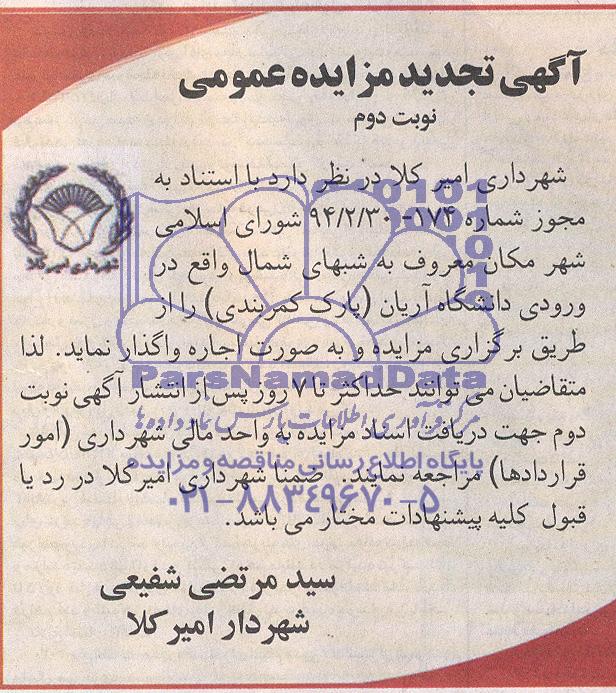 آگهی تجدید مزایده عمومی
نوبت دوم
شهرداری امیر کلا در نظر دارد با استناد به
مجوز شماره ۱۷۴-۹۴/۲/۳۰ شورای اسلامی
شهر مکان معروف به شبهای شمال واقع در
ورودی دانشگاه آریان (پارک کمربندی) را از
طریق برگزاری مزایده و به صورت اجاره واگذار نماید. لذا
متقاضیان می توانند حداکثر تا ۷ روز پس از انتشار آگهی نوبت
دوم جهت دریافت اسناد مزایده به واحد مالی شهرداری (امور
قراردادها) مراجعه نمایند. ضمنا شهرداری امیرکلا در رد یا
قبول کلیه پیشنهادات مختار می باشد.
سید مرتضی شفیعی
شهردار امیرکلا
شهرداری امیرکلا
ParsNamadData
مرکز فرآوری اطلاعات پارس نماد داده ها
پایگاه اطلاع رسانی مناقصه و مزایده
۰۲۱-۸۸۳۴۹۶۷۰-۵